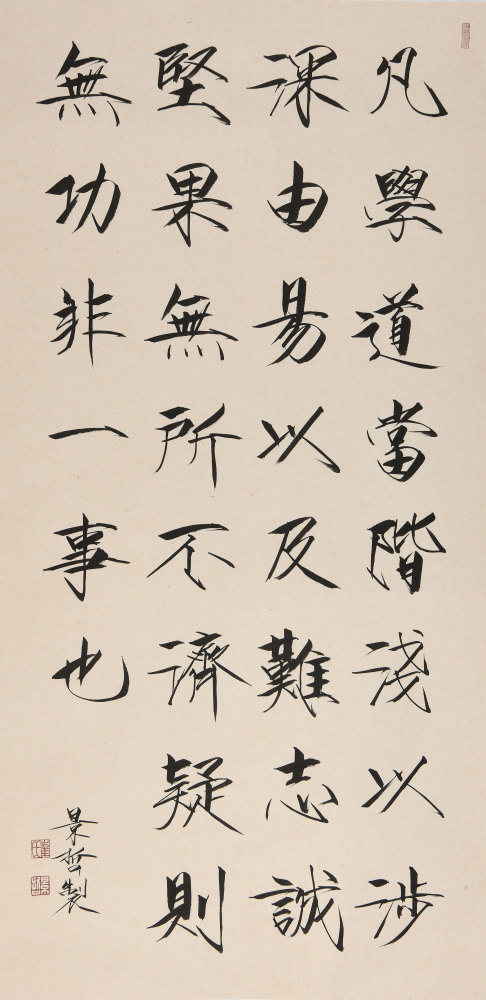 凡學道當階淺以涉
深由易以及難志誠
堅果無所不濟疑則
無功非一事也
景哲製